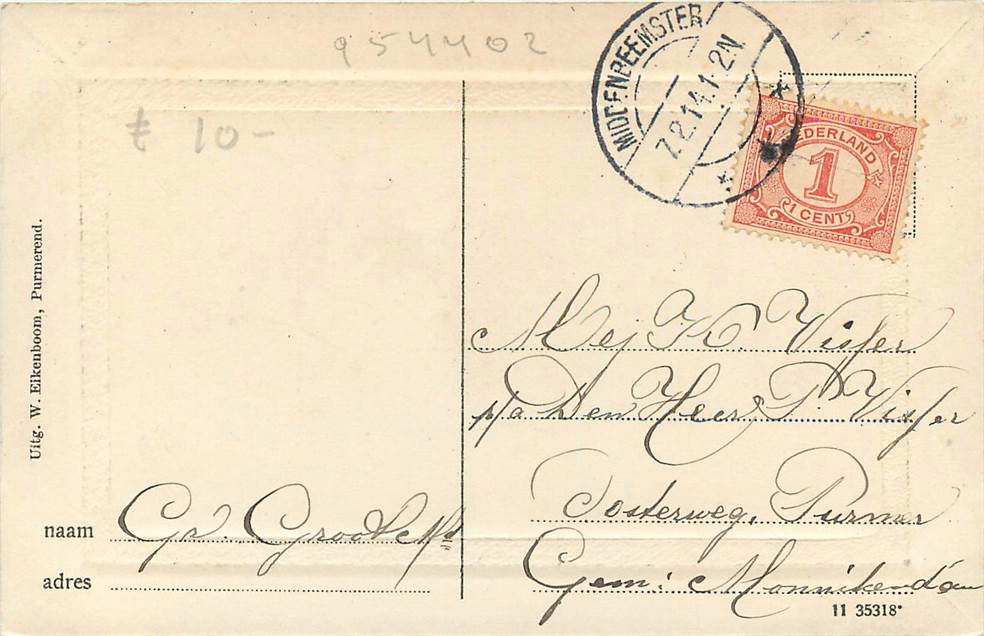 954402
£ 10-
MIDDENBEEMSTER
7.2.14.1-2N
NEDERLAND
1
1 CENT
Uitg. W. Eikenboom, Purmerend.
Mej K. Visser
p/a Den Heer P. Visser
Oosterweg, Purmer
Gem: Monnikendam
naam Gp. Groot
adres
11 35318*